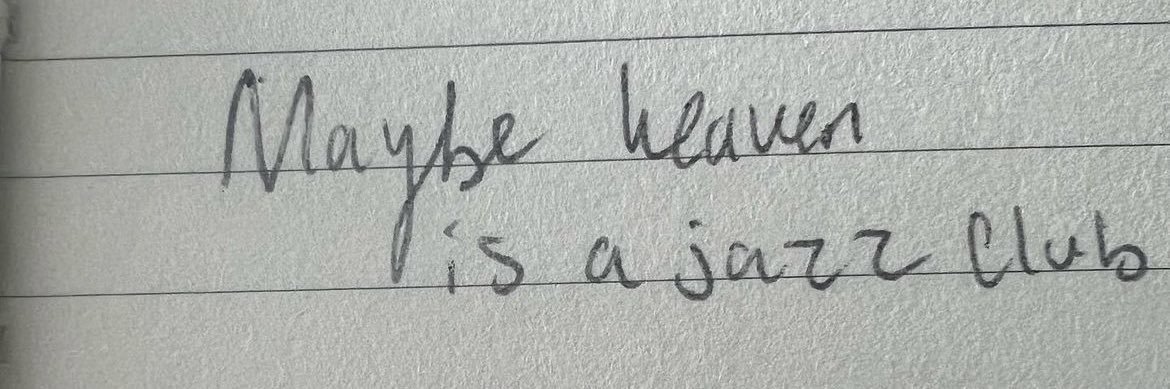 Maybe heaven
is a jazz Club